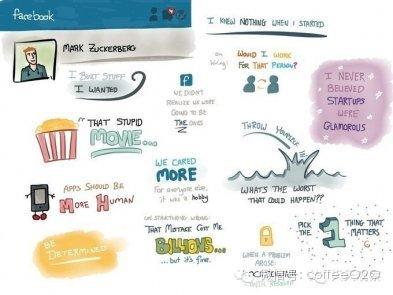 facebook
MARK ZUCKERBERG
I BUILT STUFF
I WANTED
"THAT STUPID
MOVIE...
APPS SHOULD BE
MORE HUMAN
BE
DETERMINED
WE DIDN'T
REALIZE WE WERE
GOING TO BE
THE ONES
WE CARED
MORE
For everyone else,
it was a hobby
ON SOMETHING WRONG:
THAT MISTAKE COST ME
BILLIONS...
...but it's fine.
I KNEW NOTHING WHEN I STARTED
ON
hiring:
WOULD I WORK
FOR THAT PERSON?
THROW YOURSELF
WHAT'S THE WORST
THAT COULD HAPPEN??
WHEN A PROBLEM
AROSE:
I NEVER
BELIEVED
STARTUPS
WERE
GLAMOROUS
PICK
THE
1
THING THAT
MATTERS
coffeeO2O